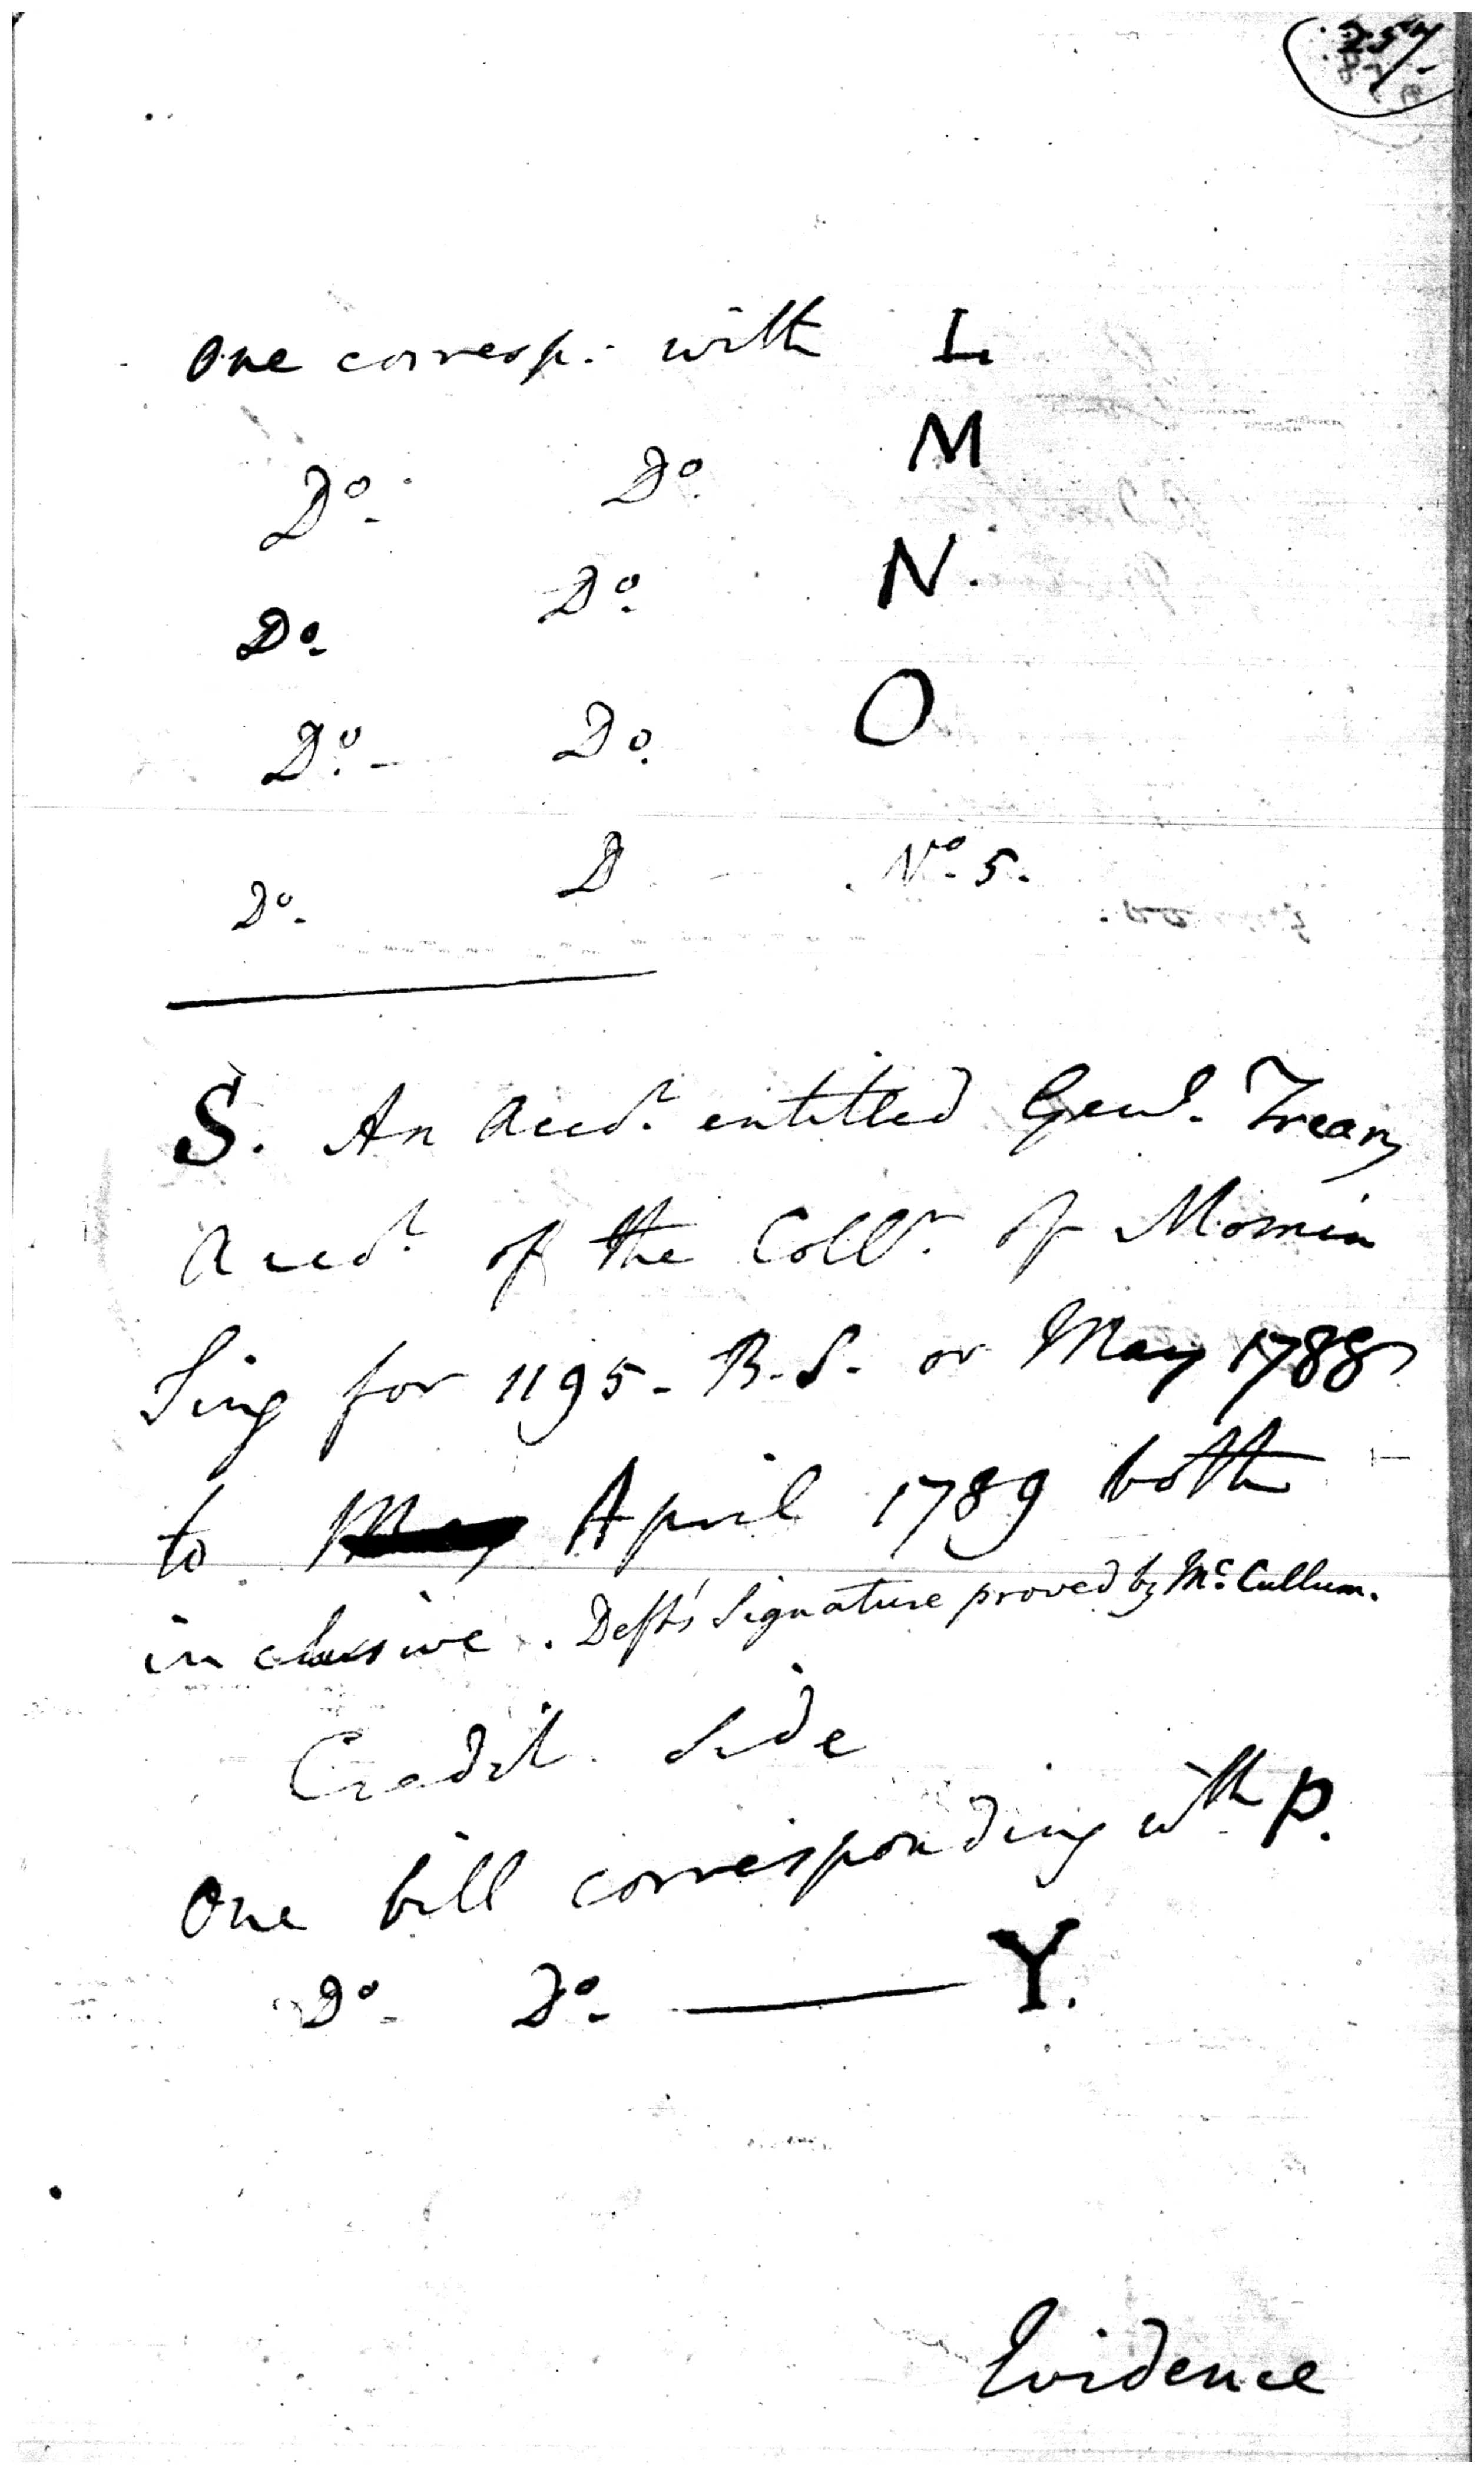 257
One corresp. with L
Do. Do M
Do. Do. N.
Do. Do. O
Do. D No. 5.
S. An Acct. entitled Genl. Treary
Acct. of the Collr. of Momin
Sing for 1195. B.S. or May 1788
to May April 1789 both
inclusive. Deft's Signature proved by Mc. Cullum.
Credit Side
One bill corresponding wth P.
Do. Do. Y.
Evidence